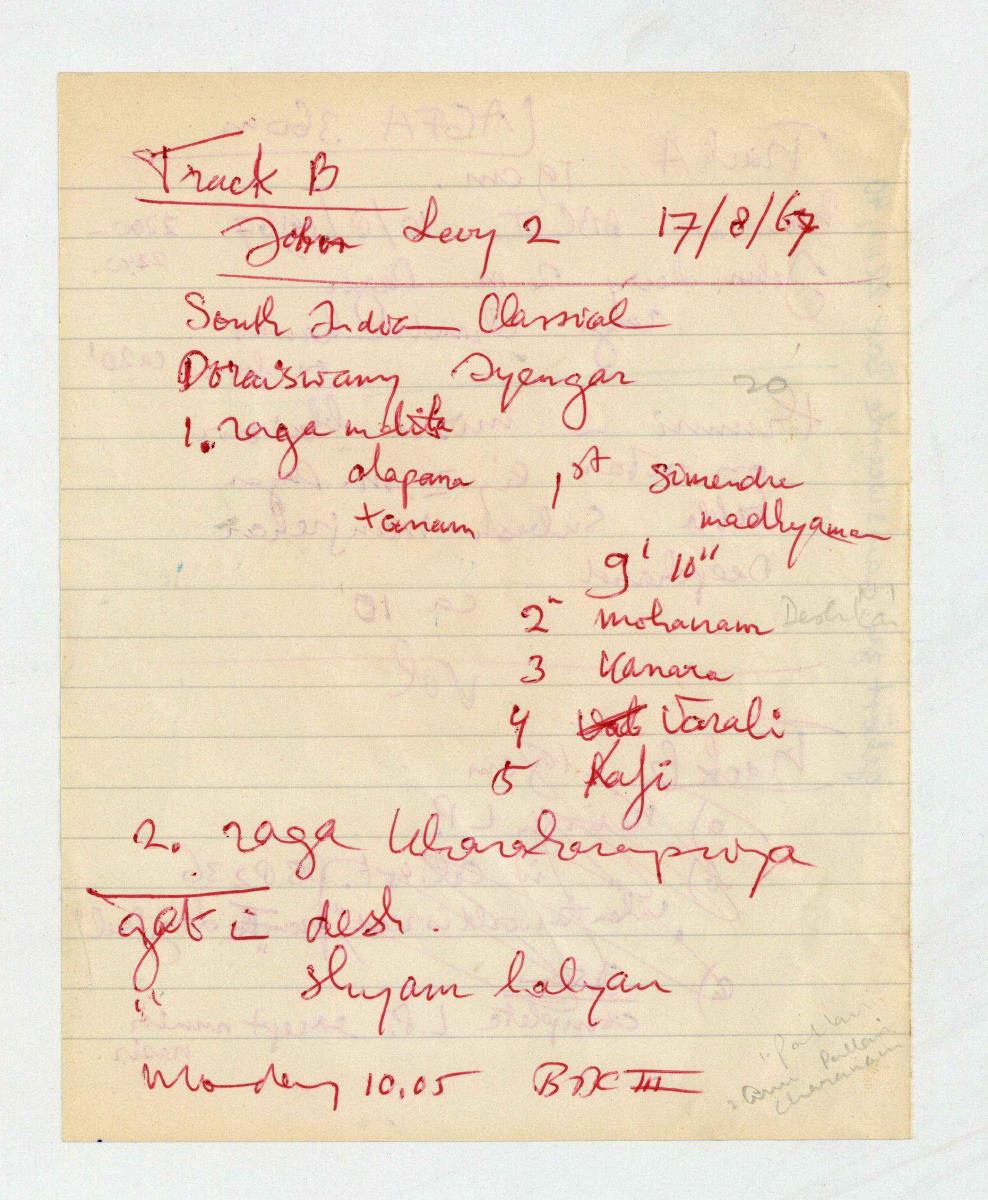 Track B
John Levy 2 17/8/67
South Indian Classical
Doraiswamy Iyengar
20
1. raga malika
alapana 1st simendra
tanam madhyamam
9' 10"
2" mohanam Deshkar
3 Kanara
4 Varali
5 Kafi
2. raga Kharaharapriya
gat in desh.
" shyam kalyan
Monday 10.05 BBC III
Pallavi
Anu Pallavi
Charanam